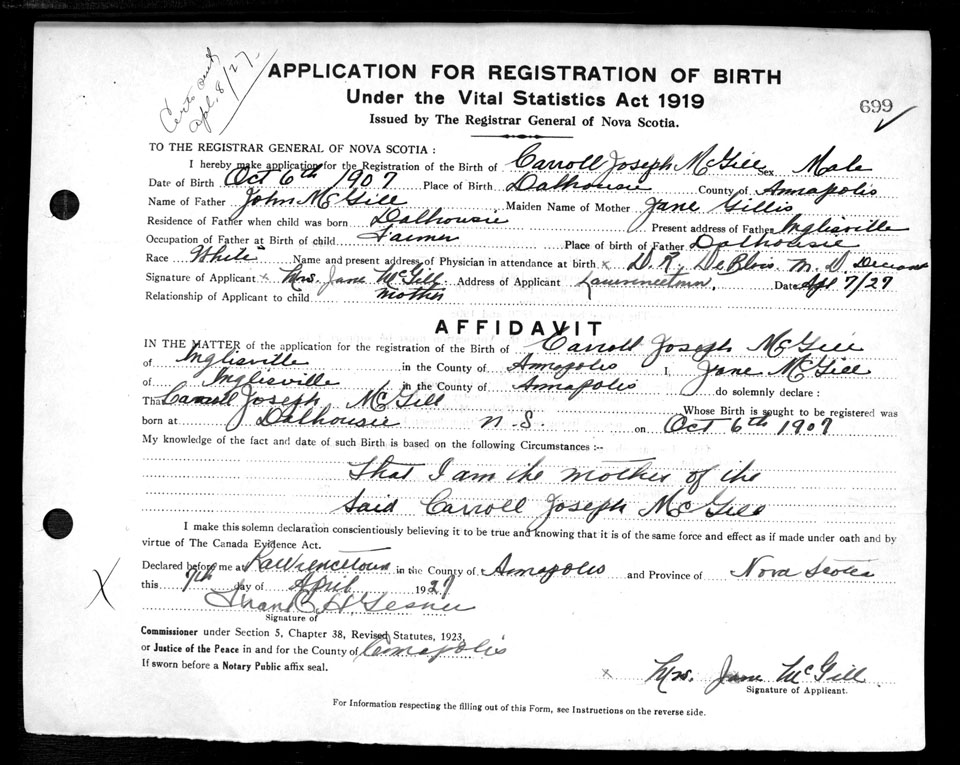 Certs sent
Apl. 8/27.
APPLICATION FOR REGISTRATION OF BIRTH
Under the Vital Statistics Act 1919
Issued by The Registrar General of Nova Scotia.
699
TO THE REGISTRAR GENERAL OF NOVA SCOTIA :
I hereby make application for the Registration of the Birth of Carroll Joseph McGill Sex Male
Date of Birth Oct 6th 1907 Place of Birth Dalhousie County of Annapolis
Name of Father John McGill Maiden Name of Mother Jane Gillis
Residence of Father when child was born Dalhousie Present address of Father Inglisville
Occupation of Father at Birth of child Farmer Place of birth of Father Dalhousie
Race White Name and present address of Physician in attendance at birth x D. R. DeBlois M. D
Signature of Applicant x Mrs. Jane McGill Address of Applicant Date Apl 7/27
Relationship of Applicant to child mother
AFFIDAVIT
IN THE MATTER of the application for the registration of the Birth of Carroll Joseph McGill
of Inglisville in the County of Annapolis I, Jane McGill
of Inglisville in the County of Annapolis do solemnly declare :
That Carroll Joseph McGill Whose Birth is sought to be registered was
born at Dalhousie N. S. on Oct 6th 1907
My knowledge of the fact and date of such Birth is based on the following Circumstances :--
That I am the mother of the
said Carroll Joseph McGill
I make this solemn declaration conscientiously believing it to be true and knowing that it is of the same force and effect as if made under oath and by
virtue of The Canada Evidence Act.
Declared before me at Lawrencetown in the County of Annapolis and Province of Nova Scotia
this 7th day of April 1927
H Gesner
Signature of
Commissioner under Section 5, Chapter 38, Revised Statutes, 1923,
or Justice of the Peace in and for the County of Annapolis
If sworn before a Notary Public affix seal.
x Mrs. Jane McGill
Signature of Applicant.
For Information respecting the filling out of this Form, see Instructions on the reverse side.